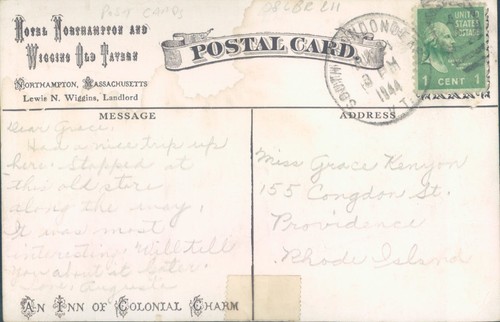 Post Cards
Hotel Northampton and
Wiggins Old Tavern
Northampton, Massachusetts
Lewis N. Wiggins, Landlord
POSTAL CARD.
PM
1944
UNITED
STATES
POSTAGE
1 CENT 1
MESSAGE
ADDRESS
Dear Grace,
Had a nice trip up
here. Stopped at
this old store
along the way.
It was most
interesting. Will tell
you about it later.
Love, Augusta
Miss Grace Kenyon
155 Congdon St.
Providence
Rhode Island
An Inn of Colonial Charm